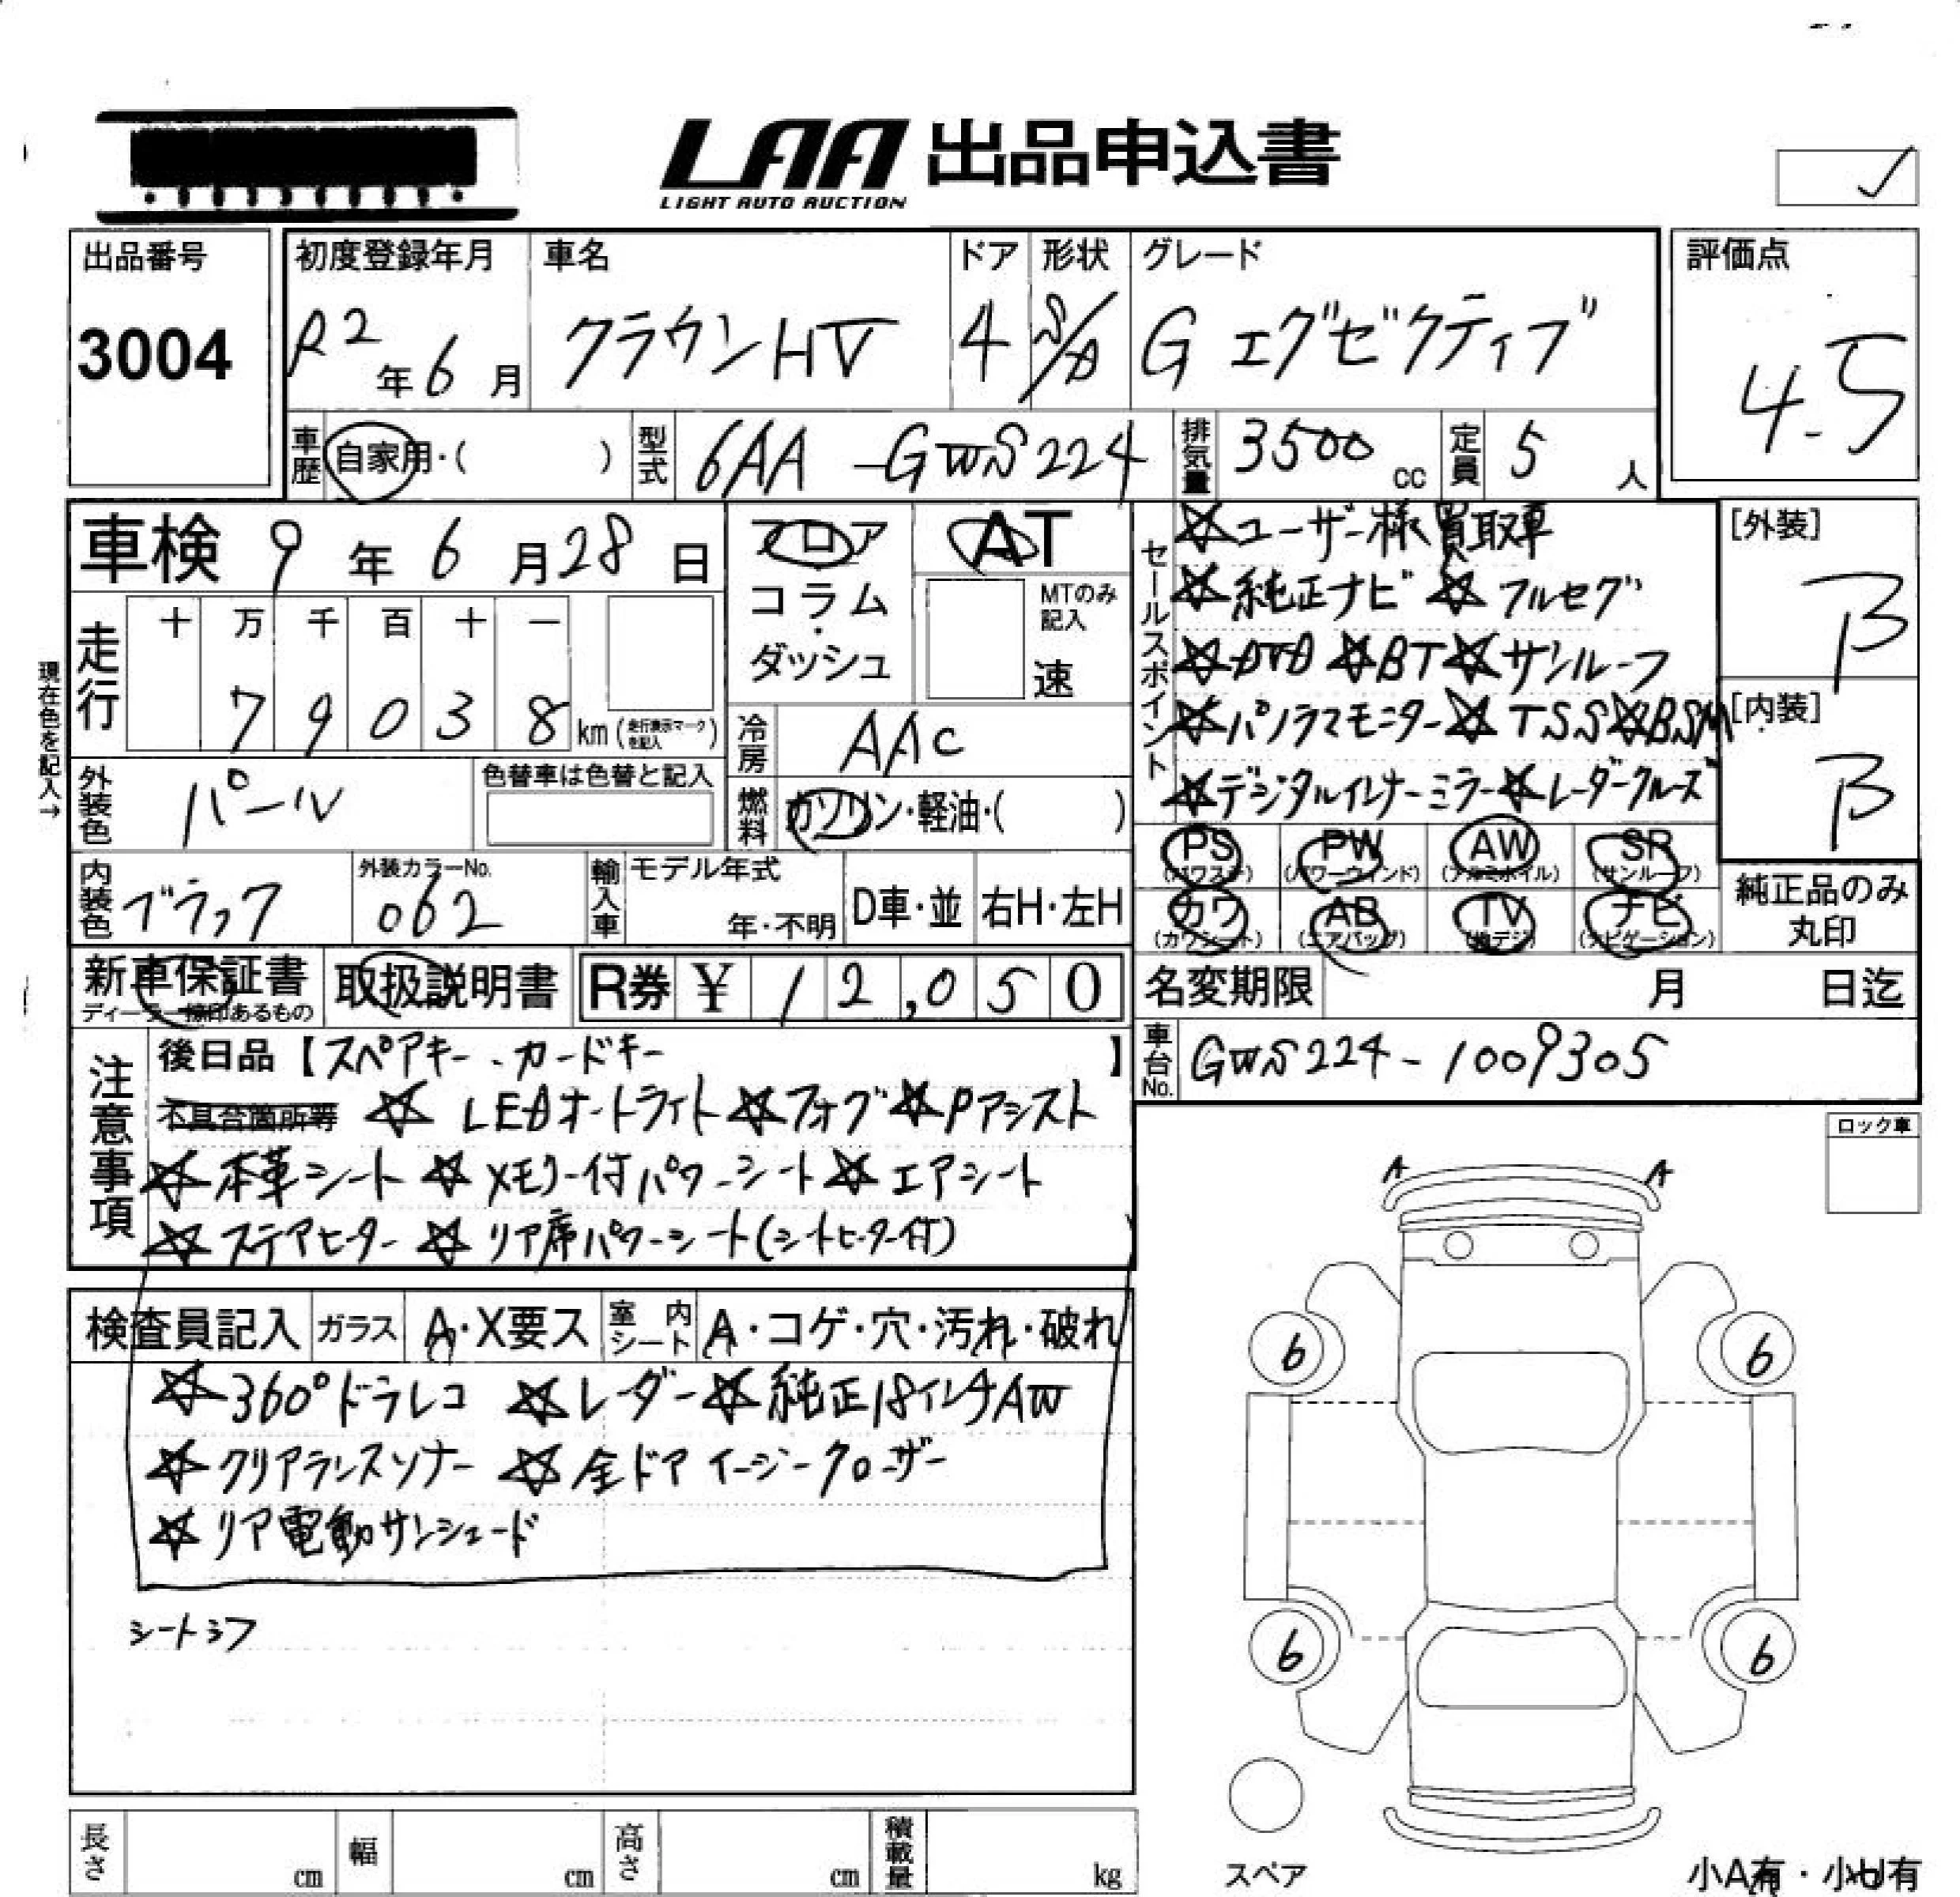 LAA 出品申込書
LIGHT AUTO AUCTION
出品番号
3004
初度登録年月
R2年6月
車名
クラウンHV
ドア
4
形状
S/D
グレード
G エグゼクティブ
評価点
4.5
車歴
自家用・( )
型式
6AA-GWS224
排気量
3500cc
定員
5人
車検 9年6月28日
フロア
コラム・
ダッシュ
AT
MTのみ記入
速
走行
十 万 千 百 十 一
7 9 0 3 8 km (走行表示マークを記入)
現在色を記入→
外装色
パール
色替車は色替と記入
冷房
AAC
燃料
ガソリン・軽油・( )
内装色
ブラック
外装カラーNo.
062
輸入車
モデル年式
年・不明
D車・並
右H・左H
セールスポイント
☆ユーザー様買取車
☆純正ナビ ☆フルセグ
☆DVD ☆BT ☆サンルーフ
☆パノラマモニター ☆TSS ☆BSM
☆デジタルインナーミラー ☆レーダークルーズ
[外装]
B
[内装]
B
PS (パワステ) PW (パワーウィンド) AW (アルミホイル) SR (サンルーフ)
カワ (カワシート) AB (エアバッグ) TV (地デジ) ナビ (ナビゲーション)
純正品のみ
丸印
新車保証書
ディーラー捺印あるもの
取扱説明書
R券 ¥ 12,050
名変期限 月 日迄
車台No.
GWS224-1009305
注意事項
後日品【スペアキー、カードキー】
不具合箇所等 ☆LEDオートライト ☆フォグ ☆Pアシスト
☆本革シート ☆メモリー付パワーシート ☆エアシート
☆ステアヒーター ☆リア席パワーシート(シートヒーター付)
検査員記入 ガラス A・X要ス 室内シート A・コゲ・穴・汚れ・破れ
☆360°ドラレコ ☆レーダー ☆純正18インチAW
☆クリアランスソナー ☆全ドアイージークローザー
☆リア電動サンシェード
シートシワ
ロック車
A A
6 6
6 6
スペア
小A有・小U有
長さ cm 幅 cm 高さ cm 積載量 kg